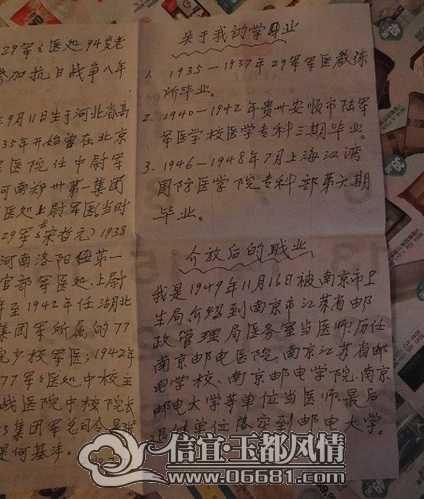 29军军医处94岁老
参加抗日战争八年
年9月11日生于河北省高
35年开始曾在北京
军医院任中尉军
河南郑州第一集团
医处上尉军医(当时
29军军长宋哲元)1938
河南洛阳纽第一
官部军医处,上尉
年至1942年任湖北
集团军所属的77
处少校军医;1942年
77军军医处中校主
战医院中校院长
集团军总司令是
是何基沣。
关于我的学习毕业
1. 1935—1937年29军军医教练
所毕业。
2. 1940—1942年贵州安顺市陆军
军医学校医学专科三期毕业。
3. 1946—1948年7月上海江湾
国防医学院专科部第六期
毕业。
介放后的职业
我是1949年11月16日被南京市卫
生局介绍到南京市江苏省邮
政管理局医务室当医师,历任
南京邮电医院、南京江苏省邮
电学校、南京邮电学院、南京
邮电大学等单位当医师,最后
单位落实到邮电大学。
信宜·玉都风情
www.06681.com